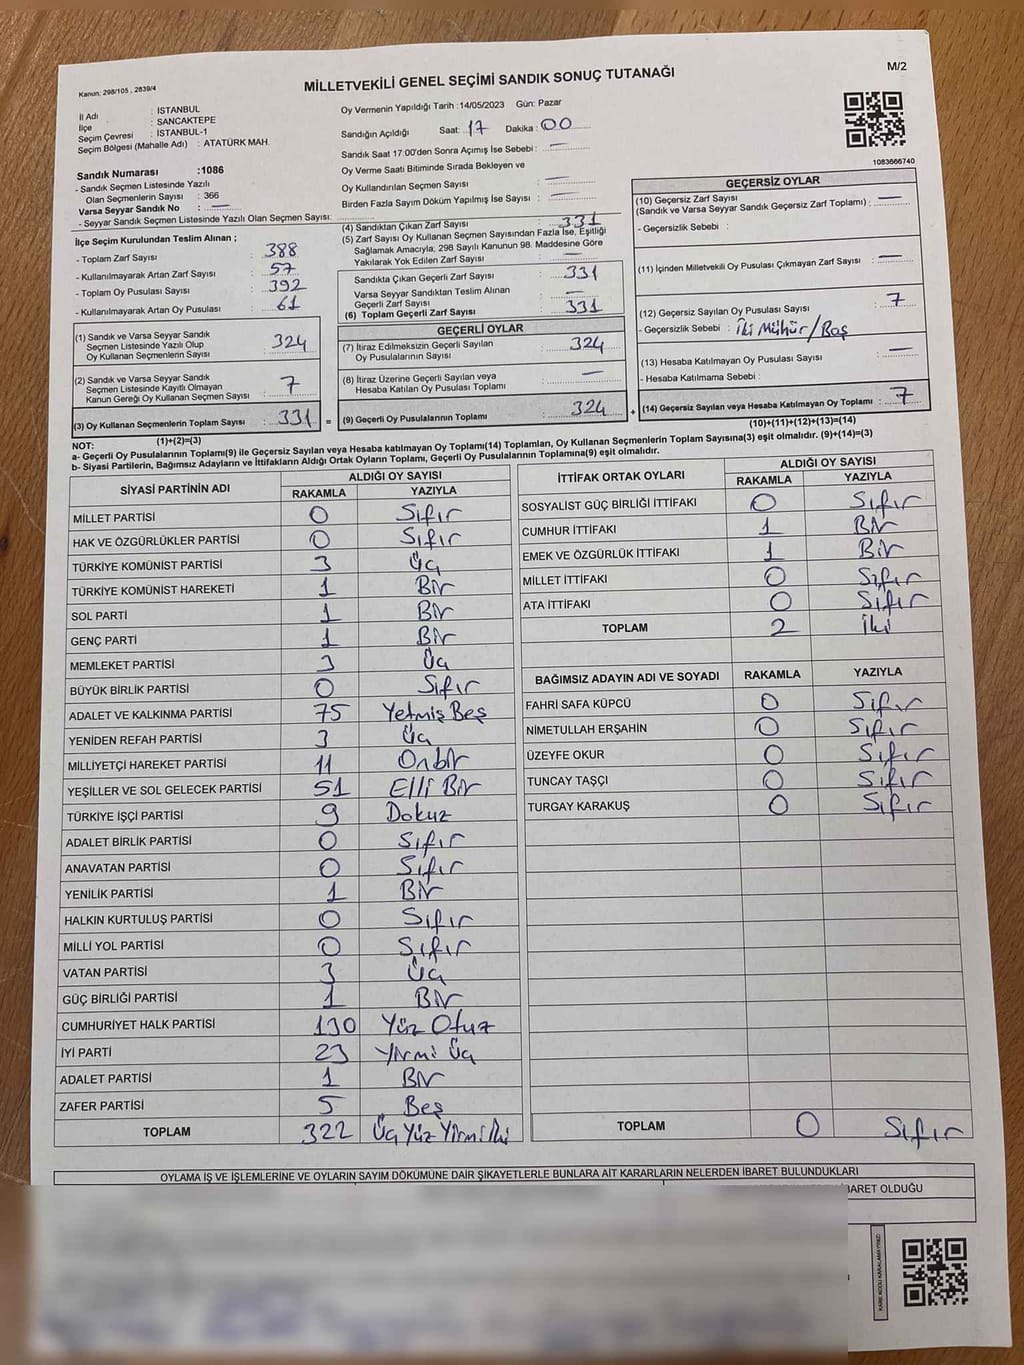 Kanun: 298/105 , 2839/4
MİLLETVEKİLİ GENEL SEÇİMİ SANDIK SONUÇ TUTANAĞI
M/2
İl Adı : İSTANBUL
İlçe : SANCAKTEPE
Seçim Çevresi : İSTANBUL-1
Seçim Bölgesi (Mahalle Adı) : ATATÜRK MAH.
Oy Vermenin Yapıldığı Tarih :14/05/2023 Gün: Pazar
Sandığın Açıldığı Saat: 17 Dakika : 00
Sandık Saat 17:00'den Sonra Açımış İse Sebebi : —
Oy Verme Saati Bitiminde Sırada Bekleyen ve
Oy Kullandırılan Seçmen Sayısı —
Birden Fazla Sayım Döküm Yapılmış İse Sayısı : —
1083666740
Sandık Numarası :1086
- Sandık Seçmen Listesinde Yazılı
Olan Seçmenlerin Sayısı : 366
Varsa Seyyar Sandık No : —
- Seyyar Sandık Seçmen Listesinde Yazılı Olan Seçmen Sayısı:
İlçe Seçim Kurulundan Teslim Alınan ;
- Toplam Zarf Sayısı : 388
- Kullanılmayarak Artan Zarf Sayısı : 57
- Toplam Oy Pusulası Sayısı : 392
- Kullanılmayarak Artan Oy Pusulası : 61
(1) Sandık ve Varsa Seyyar Sandık
Seçmen Listesinde Yazılı Olup
Oy Kullanan Seçmenlerin Sayısı : 324
(2) Sandık ve Varsa Seyyar Sandık
Seçmen Listesinde Kayıtlı Olmayan
Kanun Gereği Oy Kullanan Seçmen Sayısı : 7
(3) Oy Kullanan Seçmenlerin Toplam Sayısı : 331
(1)+(2)=(3)
(4) Sandıktan Çıkan Zarf Sayısı : 331
(5) Zarf Sayısı Oy Kullanan Seçmen Sayısından Fazla İse, Eşitliği
Sağlamak Amacıyla, 298 Sayılı Kanunun 98. Maddesine Göre
Yakılarak Yok Edilen Zarf Sayısı : —
Sandıkta Çıkan Geçerli Zarf Sayısı : 331
Varsa Seyyar Sandıktan Teslim Alınan
Geçerli Zarf Sayısı : —
(6) Toplam Geçerli Zarf Sayısı : 331
GEÇERLİ OYLAR
(7) İtiraz Edilmeksizin Geçerli Sayılan
Oy Pusulalarının Sayısı : 324
(8) İtiraz Üzerine Geçerli Sayılan veya
Hesaba Katılan Oy Pusulası Toplamı : —
= (9) Geçerli Oy Pusulalarının Toplamı : 324 +
GEÇERSİZ OYLAR
(10) Geçersiz Zarf Sayısı
(Sandık ve Varsa Seyyar Sandık Geçersiz Zarf Toplamı) : —
- Geçersizlik Sebebi :
(11) İçinden Milletvekili Oy Pusulası Çıkmayan Zarf Sayısı : —
(12) Geçersiz Sayılan Oy Pusulası Sayısı : 7
- Geçersizlik Sebebi : İki Mühür/Boş
(13) Hesaba Katılmayan Oy Pusulası Sayısı : —
- Hesaba Katılmama Sebebi :
(14) Geçersiz Sayılan veya Hesaba Katılmayan Oy Toplamı : 7
(10)+(11)+(12)+(13)=(14)
NOT:
a- Geçerli Oy Pusulalarının Toplamı(9) ile Geçersiz Sayılan veya Hesaba katılmayan Oy Toplamı(14) Toplamları, Oy Kullanan Seçmenlerin Toplam Sayısına(3) eşit olmalıdır. (9)+(14)=(3)
b- Siyasi Partilerin, Bağımsız Adayların ve İttifakların Aldığı Ortak Oyların Toplamı, Geçerli Oy Pusulalarının Toplamına(9) eşit olmalıdır.
SİYASİ PARTİNİN ADI ALDIĞI OY SAYISI
RAKAMLA YAZIYLA
MİLLET PARTİSİ 0 Sıfır
HAK VE ÖZGÜRLÜKLER PARTİSİ 0 Sıfır
TÜRKİYE KOMÜNİST PARTİSİ 3 Üç
TÜRKİYE KOMÜNİST HAREKETİ 1 Bir
SOL PARTİ 1 Bir
GENÇ PARTİ 1 Bir
MEMLEKET PARTİSİ 3 Üç
BÜYÜK BİRLİK PARTİSİ 0 Sıfır
ADALET VE KALKINMA PARTİSİ 75 Yetmiş Beş
YENİDEN REFAH PARTİSİ 3 Üç
MİLLİYETÇİ HAREKET PARTİSİ 11 Onbir
YEŞİLLER VE SOL GELECEK PARTİSİ 51 Elli Bir
TÜRKİYE İŞÇİ PARTİSİ 9 Dokuz
ADALET BİRLİK PARTİSİ 0 Sıfır
ANAVATAN PARTİSİ 0 Sıfır
YENİLİK PARTİSİ 1 Bir
HALKIN KURTULUŞ PARTİSİ 0 Sıfır
MİLLİ YOL PARTİSİ 0 Sıfır
VATAN PARTİSİ 3 Üç
GÜÇ BİRLİĞİ PARTİSİ 1 Bir
CUMHURİYET HALK PARTİSİ 130 Yüz Otuz
İYİ PARTİ 23 Yirmi Üç
ADALET PARTİSİ 1 Bir
ZAFER PARTİSİ 5 Beş
TOPLAM 322 Üç Yüz Yirmi İki
İTTİFAK ORTAK OYLARI ALDIĞI OY SAYISI
RAKAMLA YAZIYLA
SOSYALİST GÜÇ BİRLİĞİ İTTİFAKI 0 Sıfır
CUMHUR İTTİFAKI 1 Bir
EMEK VE ÖZGÜRLÜK İTTİFAKI 1 Bir
MİLLET İTTİFAKI 0 Sıfır
ATA İTTİFAKI 0 Sıfır
TOPLAM 2 İki
BAĞIMSIZ ADAYIN ADI VE SOYADI RAKAMLA YAZIYLA
FAHRİ SAFA KÜPCÜ 0 Sıfır
NİMETULLAH ERŞAHİN 0 Sıfır
ÜZEYFE OKUR 0 Sıfır
TUNCAY TAŞÇI 0 Sıfır
TURGAY KARAKUŞ 0 Sıfır
TOPLAM 0 Sıfır
OYLAMA İŞ VE İŞLEMLERİNE VE OYLARIN SAYIM DÖKÜMÜNE DAİR ŞİKAYETLERLE BUNLARA AİT KARARLARIN NELERDEN İBARET BULUNDUKLARI
İBARET OLDUĞU
KARE KODU KARALAMAYINIZ!